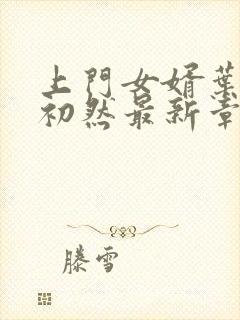 上門女婿葉
初然最新章
滕雪